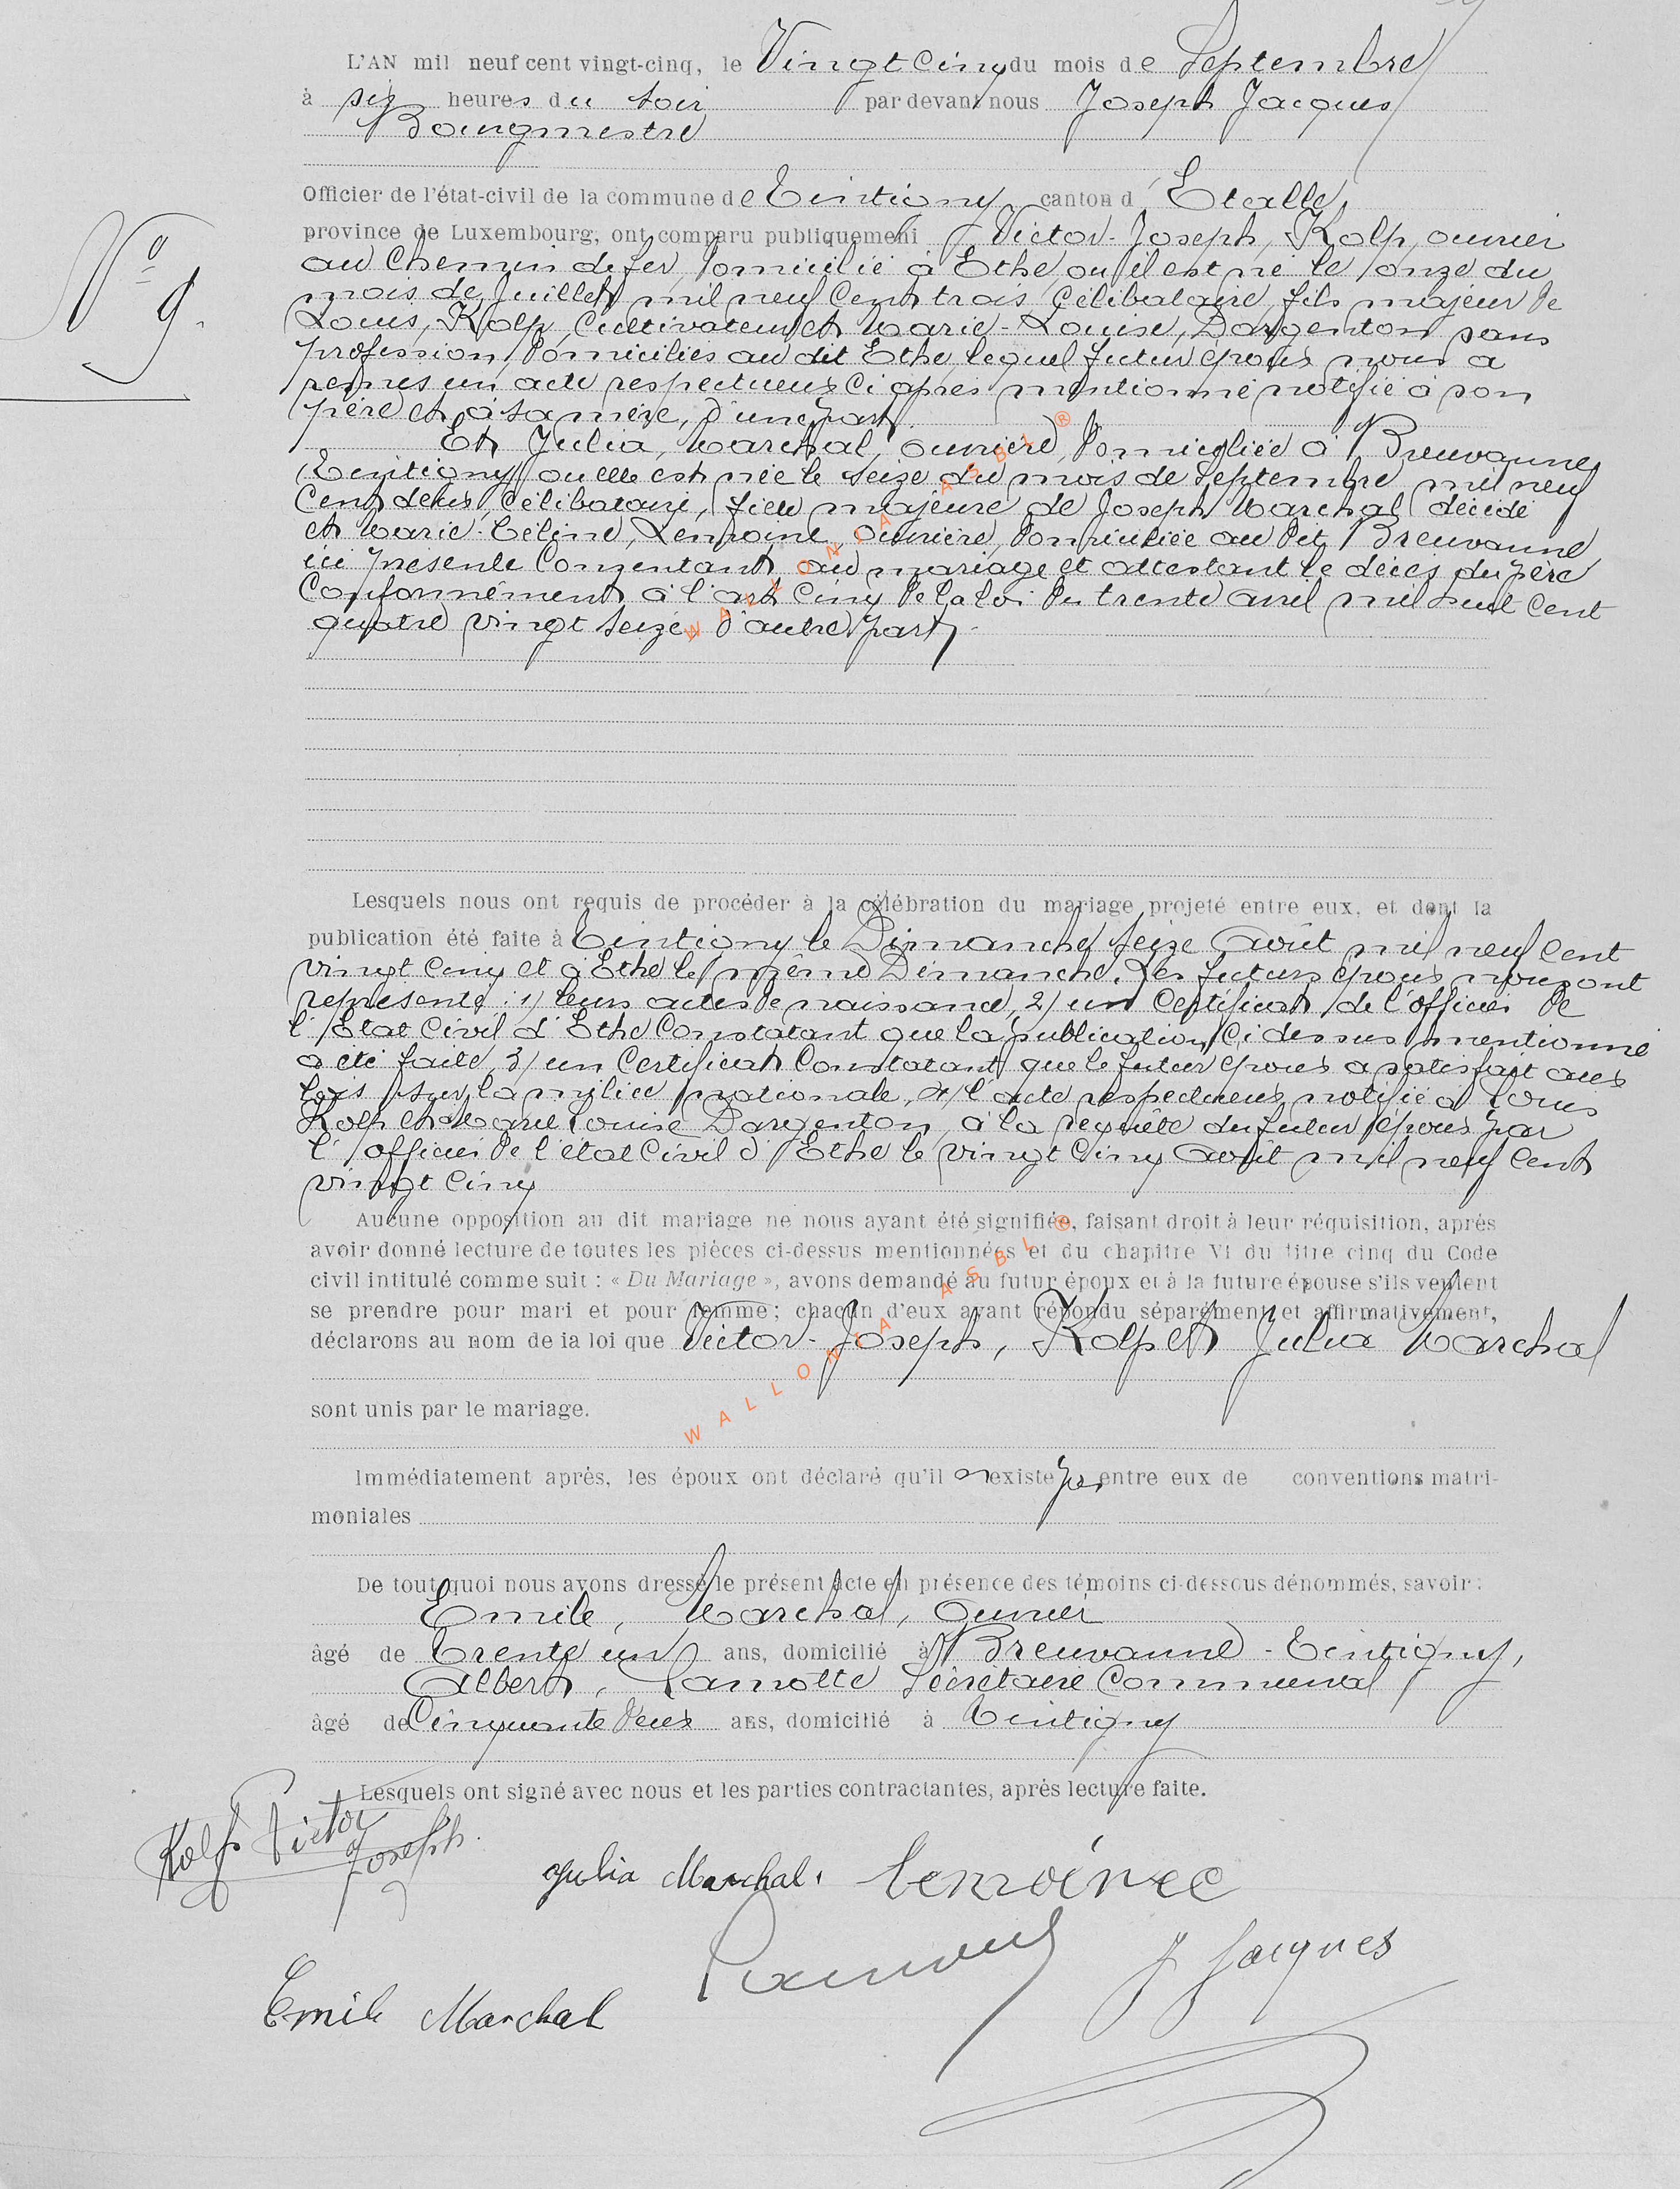 L'AN mil neuf cent vingt-cinq, le Vingt Cinq du mois de Septembre
à six heures du soir par devant nous Joseph Jacques
Bourgmestre
Officier de l'état-civil de la commune de Tintigny canton d'Etalle
N° 9.
province de Luxembourg, ont comparu publiquement Victor-Joseph, Kolp, ouvrier
au chemin de fer, domicilié à Ethe ou il est né le onze du
mois de Juillet mil neuf cent trois célibataire, fils majeur de
Louis, Kolp, Cultivateur et Marie-Louise, Dargenton sans
profession, domiciliés au dit Ethe lequel futur époux nous a
remis un acte respectueux ci après mentionné notifié à son
père et à sa mère, d'une part.
Et Julia, Marchal, ouvrière, domiciliée à Breuvanne
Tintigny ou elle est née le seize du mois de Septembre mil neuf
cent deux, célibataire, fille majeure de Joseph Marchal décédé
et Marie-Céline, Lemoine, ouvrière, domiciliée au dit Breuvanne
ici présente consentant au mariage et attestant le décès du père
Conformément à l'art cinq de la loi du trente avril mil huit cent
quatre vingt seize, d'autre part.
Lesquels nous ont requis de procéder à la célébration du mariage projeté entre eux, et dont la
publication été faite à Tintigny le Dimanche seize Août mil neuf cent
vingt cinq et à Ethe le même Dimanche. Les futurs époux nous ont
représenté : 1) leurs actes de naissance, 2) un Certificat de l'officier de
l'Etat Civil d'Ethe Constatant que la publication ci dessus mentionné
a été faite, 3) un Certificat Constatant que le futur époux a satisfait aux
lois sur la milice nationale, 4) l'acte respectueux notifié à Louis
Kolp et à Marie Louise Dargenton, à la requête du futur époux par
l'officier de l'état Civil d'Ethe le vingt cinq Août mil neuf cent
vingt cinq
Aucune opposition au dit mariage ne nous ayant été signifiée, faisant droit à leur réquisition, après
avoir donné lecture de toutes les pièces ci-dessus mentionnées et du chapitre VI du titre cinq du Code
civil intitulé comme suit : « Du Mariage », avons demandé au futur époux et à la future épouse s'ils veulent
se prendre pour mari et pour femme ; chacun d'eux ayant répondu séparément et affirmativement,
déclarons au nom de la loi que Victor-Joseph, Kolp et Julia Marchal
sont unis par le mariage.
WALLONIA ASBL ®
Immédiatement après, les époux ont déclaré qu'il n'existe pas entre eux de conventions matri-
moniales
De tout quoi nous avons dressé le présent acte en présence des témoins ci-dessous dénommés, savoir :
Emile, Marchal, Ouvrier
âgé de Trente un ans, domicilié à Breuvanne-Tintigny,
Albert, Lamotte Secrétaire Communal
âgé de Cinquante deux ans, domicilié à Tintigny
Lesquels ont signé avec nous et les parties contractantes, après lecture faite.
Kolp Victor
Joseph.
Julia Marchal. Lemoine C
J Jacques
Emile Marchal